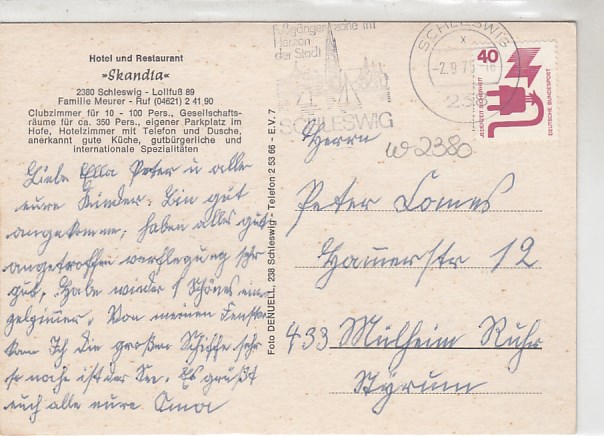 Hotel und Restaurant
»Skandia«
2380 Schleswig - Lollfuß 89
Familie Meurer - Ruf (04621) 2 41 90
Clubzimmer für 10 - 100 Pers., Gesellschafts-
räume für ca. 350 Pers., eigener Parkplatz im
Hofe, Hotelzimmer mit Telefon und Dusche,
anerkannt gute Küche, gutbürgerliche und
internationale Spezialitäten
Liebe Ella Peter u alle
eure Kinder. Bin gut
angekommen, haben alles gut
angetroffen verpflegung sehr
gut. Habe wieder 1 Schönes ein-
zelzimer. Von meinen Fenster
kan Ich die großen Schiffe sehn
so nahe ist der See. Es grüßt
euch alle eure Oma
Foto DENUELL, 238 Schleswig - Telefon 2 53 66 - E.V. 7
Fußgängerzone im
Herzen
der Stadt
SCHLESWIG
SCHLESWIG
40
JEDERZEIT SICHERHEIT
DEUTSCHE BUNDESPOST
w-2380
Herrn
Peter Comes
Hauerstr 12
433 Mülheim Ruhr
Styrum